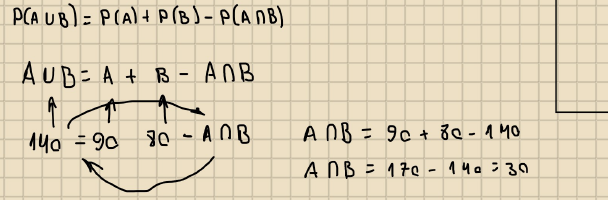 P(A∪B) = P(A) + P(B) - P(A∩B)
A∪B = A + B - A∩B
140 = 90 80 - A∩B
A∩B = 90 + 80 - 140
A∩B = 170 - 140 = 30